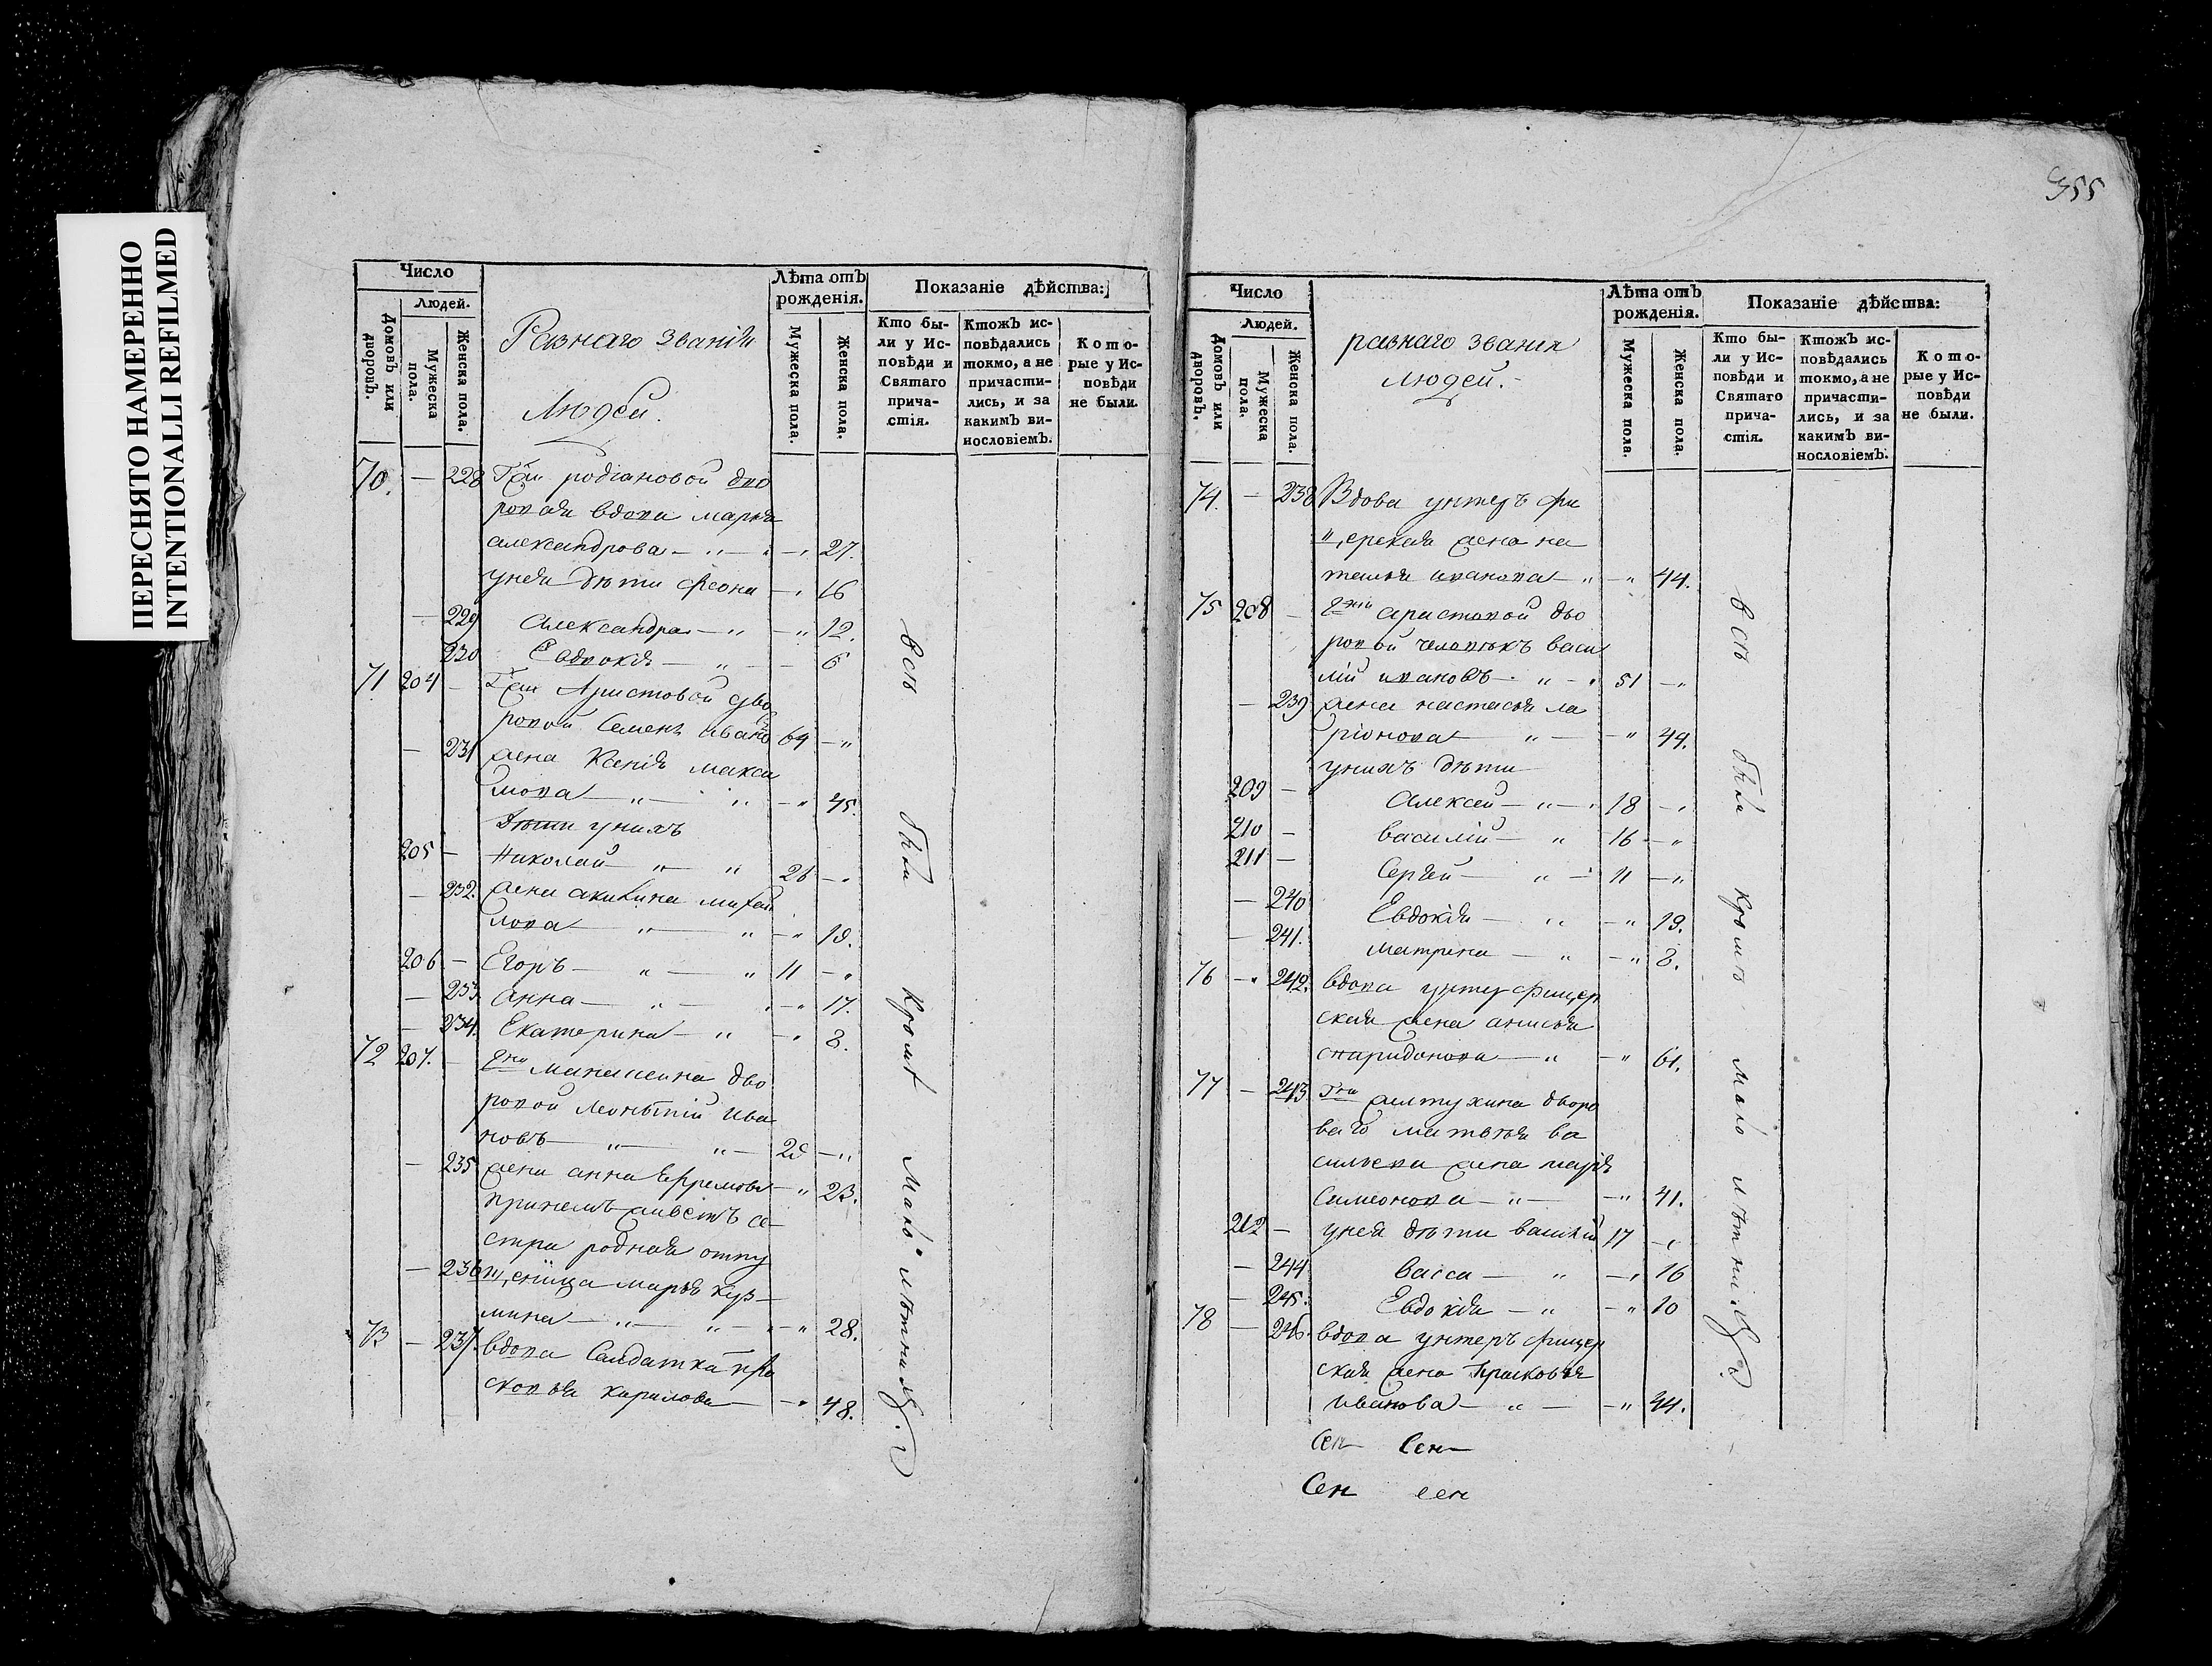 ПЕРЕСНЯТО НАМЕРЕННО
INTENTIONALLI REFILMED
Число
Людей.
Домовъ или дворовъ.
Мужеска пола.
Женска пола.
Разнаго званія
Людей.
Лѣта отъ рожденія.
Мужеска пола.
Женска пола.
Показаніе дѣйства:
Кто бы-
ли у Ис-
повѣди и
Святаго
прича-
стія.
Ктожъ ис-
повѣдались
токмо, а не
причасти-
лись, и за
какимъ ви-
нословіемъ.
Кото-
рые у Ис-
повѣди
не были.
70. — 228 Гжи родіановой дво
ровая вдова марья
александрова — " — 27.
унея дѣти — " 16
— 229 Александра — " — " 12.
230 Евдокія — " — 6
71 204 — Гжи Аристовой дво
ровой Семенъ иванов 64 — "
— 231 жена Ксенія макси
мова — " — " — " 45.
Дѣти унихъ
205 — Николай — " — " — "
— 232. жена акилина михай
лова — " — " — " 19.
206 — Егоръ — " — " 11 — "
— 233 анна — " — " 17.
— 234. Екатерина — " — " 8.
72 207. — дво
ровой Леонтій ива
новъ — " — " —
— 235 жена анна Ефремова — " 23.
принемъ живетъ се-
стра родная отпу
— 236 щ,енница марья куз-
мина — " — " — " 28.
73 — 237. вдова Салдатка пра
сковья кирилова — — " 48.
всѣ были кромѣ малолѣтних
355
Число
Людей.
Домовъ или дворовъ.
Мужеска пола.
Женска пола.
разнаго званія
людей.
Лѣта отъ рожденія.
Мужеска пола.
Женска пола.
Показаніе дѣйства:
Кто бы-
ли у Ис-
повѣди и
Святаго
прича-
стія.
Ктожъ ис-
повѣдались
токмо, а не
причасти-
лись, и за
какимъ ви-
нословіемъ.
Кото-
рые у Ис-
повѣди
не были.
74. — 238 Вдова унтеръ фи
ц,ерская жена на
талья иванова — " — " 44.
75 208 — аристовой дво
ровой человѣкъ васи
лій ивановъ — " — " 51 — "
— 239 жена настасья ла
ріонова — " — — " 44.
унихъ дѣти
209 — Алексей — " — " 18 — "
210 — василій — " 16 — "
211 — Сергей — " — 11 — "
— 240 Евдокія — " — " 19.
— 241. матрена — " — " 8.
76 — " 242. вдова унтер фицер
ская жена анисья
спиридонова — " — " 61.
77 — 243 желтухина дворо
ваго матвея ва
сильева жена марія
Симеонова — " — — " 41.
212 — унея дѣти василій 17 — "
— 244 васса — " — " 16
— 245. Евдокія — " — " 10
78 — 246. вдова унтеръ фицер
ская жена Прасковья
иванова — " — — " 44.
всѣ были кромѣ малолѣтних
Сен Сен
Сен сен